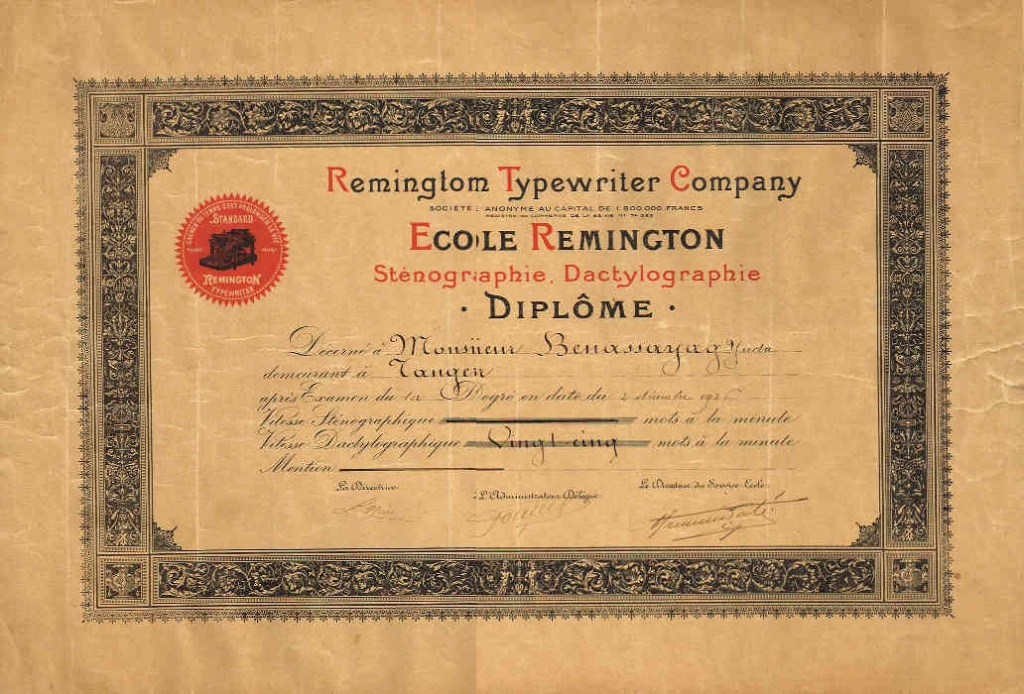 Remington Typewriter Company
SOCIETE ANONYME AU CAPITAL DE 1.800.000 FRANCS
REGISTRE DU COMMERCE DE LA SEINE Nº 74 283
ECOLE REMINGTON
Sténographie, Dactylographie
· DIPLÔME ·
STANDARD
REMINGTON
TYPEWRITER
Décerné à Monsieur Benassayag Yuda
demeurant à Tanger
après Examen du 1er Degré en date du 2 décembre 1926
Vitesse Sténographique mots à la minute
Vitesse Dactylographique Vingt-cinq mots à la minute
Mention
La Directrice
L'Administrateur Délégué
Le Directeur du Service Ecole